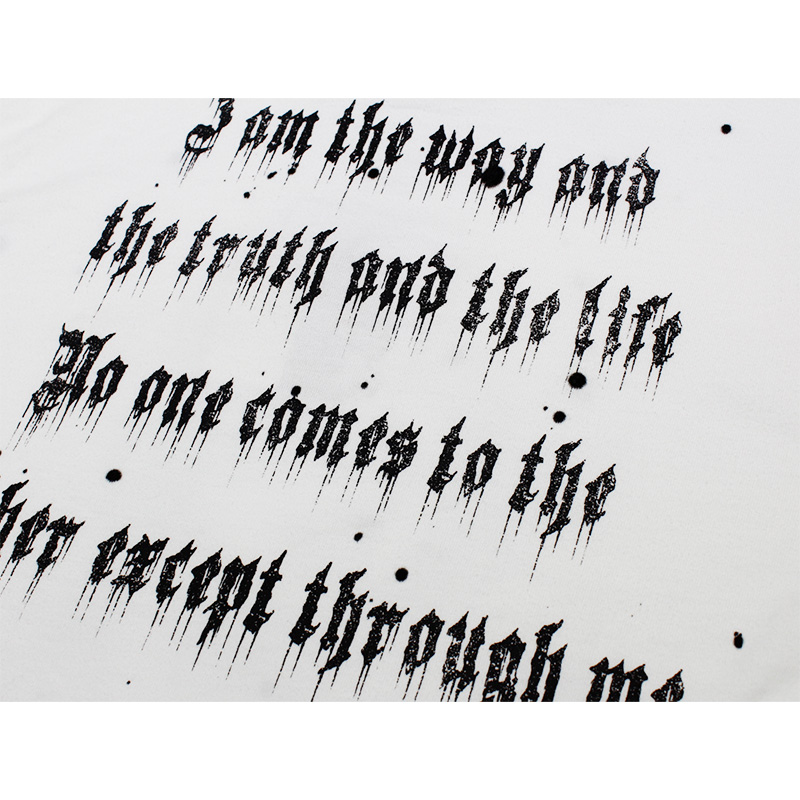 I am the way and
the truth and the life
No one comes to the
her except through me